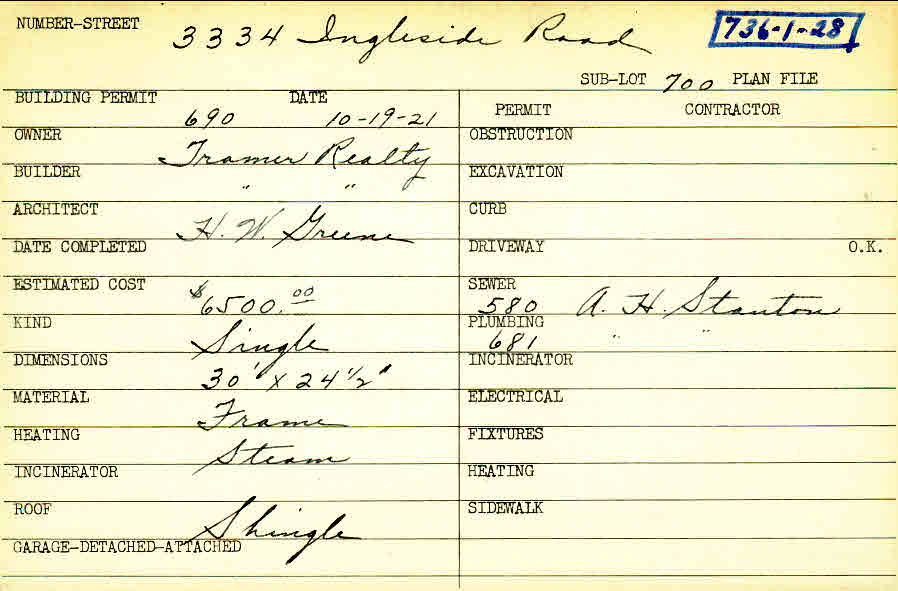 NUMBER-STREET 3334 Ingleside Road 736-1-28
SUB-LOT 700 PLAN FILE
BUILDING PERMIT 690 DATE 10-19-21
PERMIT CONTRACTOR
OWNER Tramer Realty
OBSTRUCTION
BUILDER " "
EXCAVATION
ARCHITECT H. W. Greene
CURB
DATE COMPLETED
DRIVEWAY O.K.
ESTIMATED COST $6500.00
SEWER 580 A. H. Stanton
KIND Single
PLUMBING 681 " "
DIMENSIONS 30' x 24 1/2'
INCINERATOR
MATERIAL Frame
ELECTRICAL
HEATING Steam
FIXTURES
INCINERATOR
HEATING
ROOF Shingle
SIDEWALK
GARAGE-DETACHED-ATTACHED